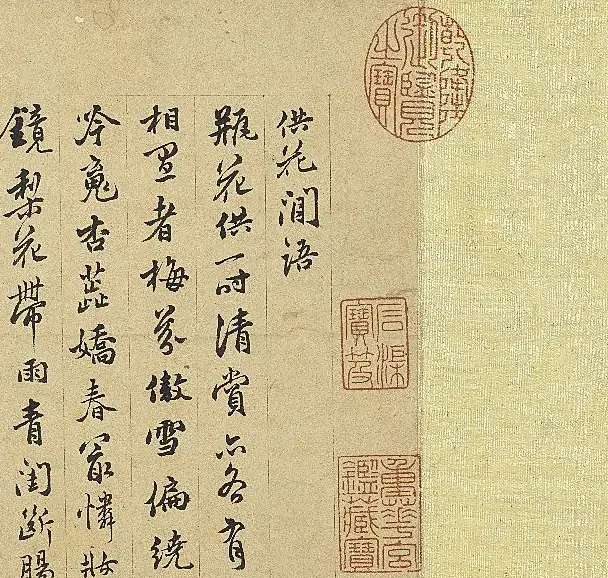 乾隆御覽之寶
石渠寶笈
重華宮鑑藏寶
供花澗語
瓶花供一时清賞亦各有
相冝者梅芬傲雪偏繞
吟魂杏蕊嬌春冣憐妝
鏡梨花帶雨青閨斷腸